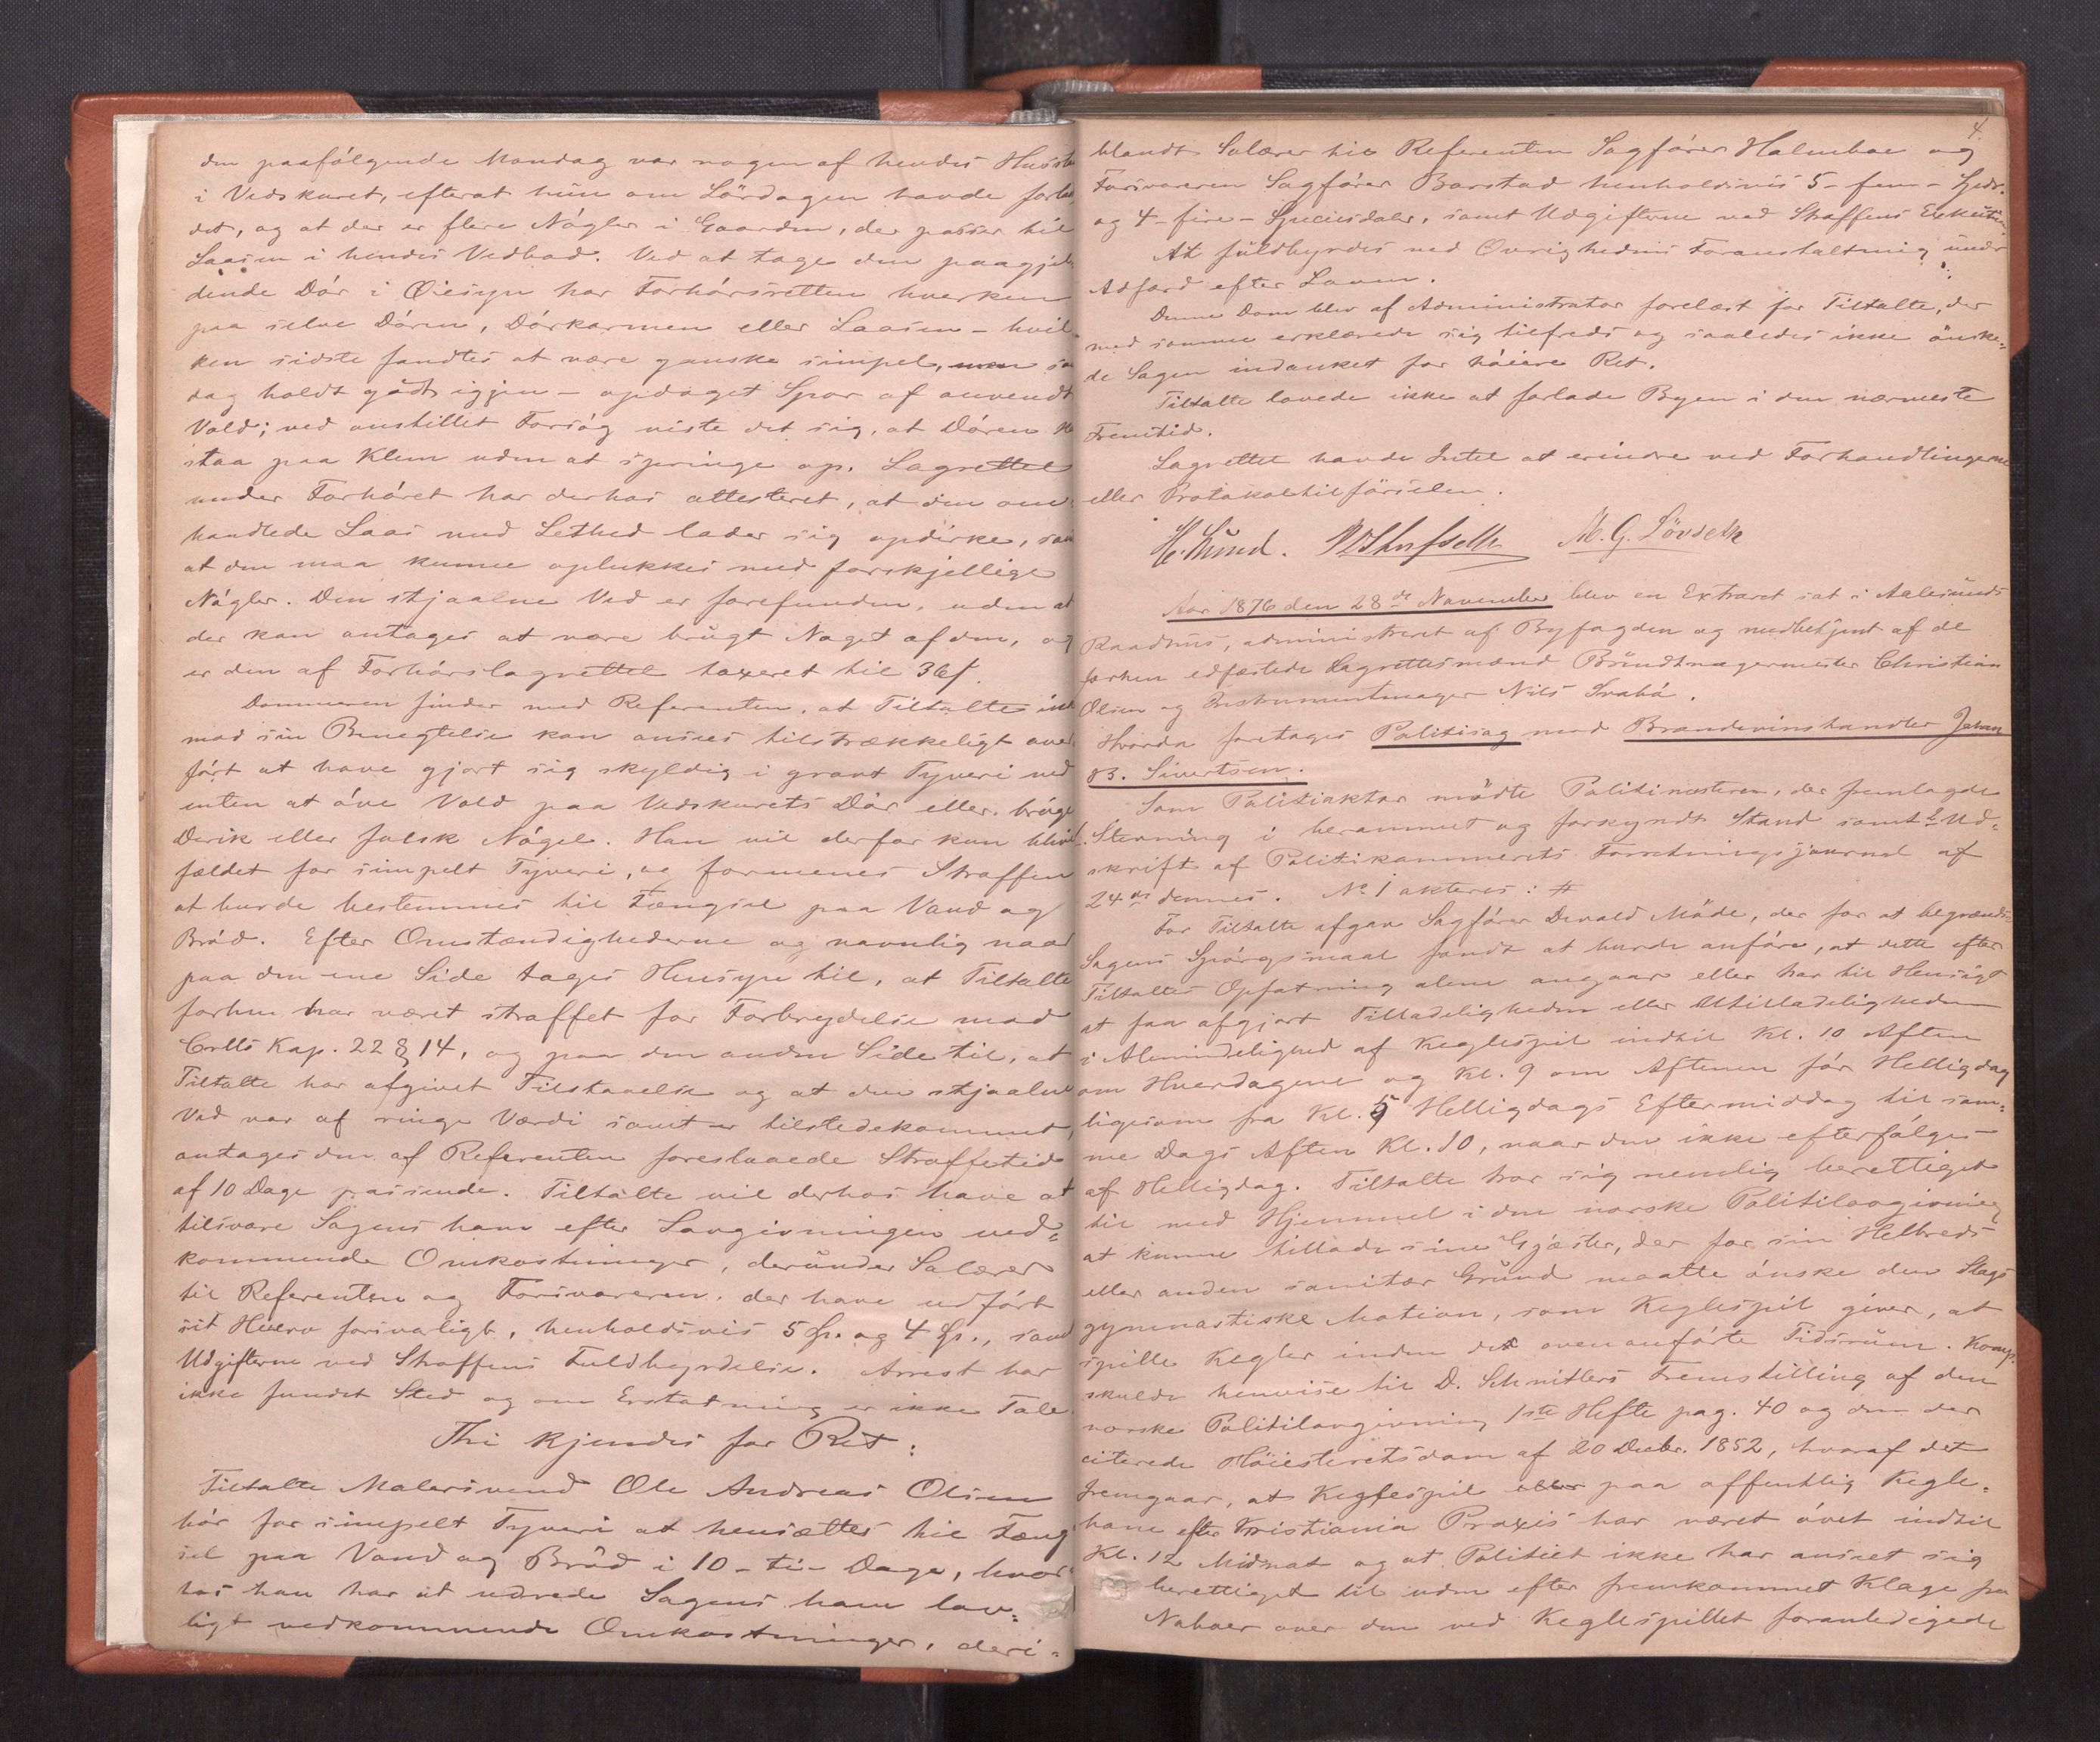 den paafølgende Mandag var nogen af hendes
i Vedskuret, efterat hun om Lördagen havde
det, og at der er flere Nøgler i Gaarden, der passer til
Laasen i hendes Vedbod. Ved at tage den paagjel-
dende Dør i Øiesyn har Forhørsretten hverken
paa selve Døren, Dørkarmen eller Laasen - hvil
ken sidste fandtes at være ganske simpel, men
dog holdt godt igjen - opdaget Spor af anvendt
Vold; ved anstillet Forsøg viste det sig, at Døren
staa paa Klem uden at springe op. Lagrettet
under Forhøret har derhos attesteret, at den om-
handlede Laas med Lethed lader sig opdirke, samt
at den maa kunne oplukkes med forskjellige
Nøgler. Den stjaalne Ved er forefunden, uden at
der kan antages at være brugt Noget af den, og
er den af Forhørslagrettet taxeret til 36 s.
Dommeren finder med Referenten, at Tiltalte
mod sin Benegtelse kan ansees tilstrækkeligt over-
ført at have gjort sig skyldig i grovt Tyveri ved
enten at øve Vold paa Vedskurets Dør eller bruge
Derik eller falsk Nøgel. Han vil derfor kun blive
fældet for simpelt Tyveri, og formenes Straffen
at burde bestemmes til Fængsel paa Vand og
Brød. Efter Omstændighederne og navnlig naar
paa den ene Side tages Hensyn til, at Tiltalte
forhen har været straffet for Forbrydelse mod
Crlls Kap. 22 § 14, og paa den anden Side til, at
Tiltalte har afgivet Tilstaaelse og at den stjaalne
Ved var af ringe Værdi samt er tilstedekommet,
antages den af Referenten foreslaaede Straffetid
af 10 Dage passende. Tiltalte vil derhos have at
tilsvare Sagens ham efter Lovgivningen ved-
kommende Omkostninger, derunder Salærer
til Referenten og Forsvareren, der have udført
sit Hverv forsvarligt, henholdsvis 5 Sp. og 4 Sp., samt
Udgifterne ved Straffens Fuldbyrdelse. Arrest har
ikke fundet Sted og om Erstatning er ikke Tale.
Thi kjendes for Ret:
Tiltalte Malersvend Ole Andreas Olsen
bør for simpelt Tyveri at hensættes til Fæng
sel paa Vand og Brød i 10 - ti - Dage, hvor-
hos han har at udrede Sagens ham lov-
ligt vedkommende Omkostninger, deri-
4.
blandt Salærer til Referenten Sagfører Holmboe og
Forsvareren Sagfører Barstad henholdsvis 5 - fem - Spdr.
og 4 - fire - Speciesdaler, samt Udgifterne ved Straffens Exekution.
At fuldbyrdes ved Øvrighedens Foranstaltning under
Adfærd efter Loven.
Denne Dom blev af Administrator forelæst for Tiltalte, der
med samme erklærede sig tilfreds og saaledes ikke ønske-
de Sagen indanket for høiere Ret.
Tiltalte lovede ikke at forlade Byen i den nærmeste
Fremtid.
Lagrettet havde Intet at erindre ved Forhandlingerne
eller Protokoltilførselen.
H. Lund. M. G. Lövseth
Aar 1876 den 28de November blev en Extraret sat i Aalesunds
Raadhus, administreret af Byfogden og medbetjent af de
forhen edfæstede Lagrettesmænd Bröndtnagermester Christian
Olsen og Instrumentmager Nils Svabø.
Hvorda foretages Politisag mod Brændevinshandler Johan
B. Sivertsen.
Som Politiaktor mødte Politimesteren, der fremlagde
Stevning i berammet og forkyndt Stand samt Ud-
skrift af Politikammerets Forretningsjournal af
24de dennes. No 1 akteres: #
For Tiltalte afgav Sagfører Devold Møde, der for at begrænds
Sagens Spørgsmaal fandt at burde anføre, at dette efter
Tiltaltes Opfatning alene angaar eller har til Hensigt
at faa afgjort Tilladeligheden eller Utilladeligheden
i Almindelighed af Keglespil indtil Kl. 10 Aften
om Hverdagene og Kl. 9 om Aftenen før Helligdag
ligesom fra Kl. 5 Helligdags Eftermiddag til sam-
me Dags Aften Kl. 10, naar den ikke efterfølges
af Helligdag. Tiltalte tror sig nemlig berettiget
til med Hjemmel i den norske Politilovgivning
at kunne tillade sine Gjæster, der for sin Helbreds
eller anden sanitær Grund maatte ønske den Slags
gymnastiske Motion, som Keglespil giver, at
spille Kegler inden det ovenanførte Tidsrum. Komp.
skulde henvise til D. Schnitlers Fremstilling af den
norske Politilovgivning 1ste Hefte pag. 40 og den der
citerede Høiesteretsdom af 20 Decbr. 1852, hvoraf det
fremgaar, at Keglespil paa offentlig Kegle-
bane efter Kristiania Praxis har været øvet indtil
Kl. 12 Midnat og at Politiet ikke har anseet sig
berettiget til uden efter fremkommet Klage fra
Naboer over den ved Keglespillet foranledigede